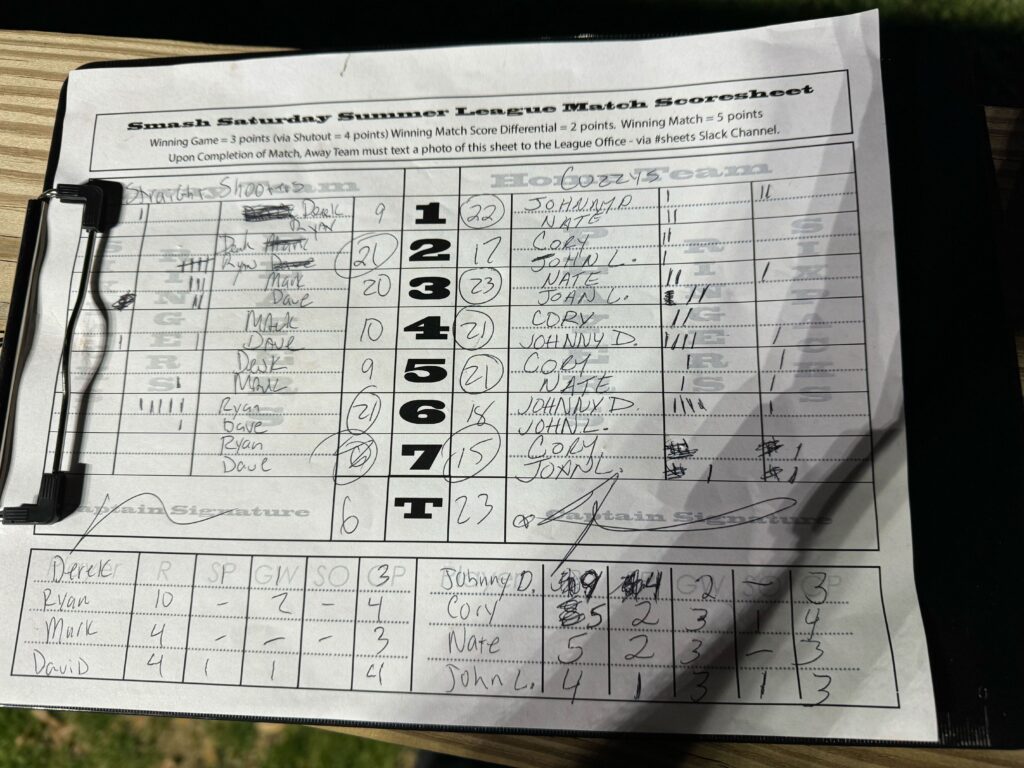 Smash Saturday Summer League Match Scoresheet
Winning Game = 3 points (via Shutout = 4 points) Winning Match Score Differential = 2 points. Winning Match = 5 points
Upon Completion of Match, Away Team must text a photo of this sheet to the League Office - via #sheets Slack Channel.
Straight Shooters Team Home Team Cozzys
Derk 9 1 22 JOHNNY D.
Ryan NATE
Derk 21 2 17 CORY
Ryan JOHN L.
Mark 20 3 23 NATE
Dave JOHN L.
Mark 10 4 21 CORY
DAVE JOHNNY D.
Derk 9 5 21 CORY
Mark NATE
Ryan 21 6 18 JOHNNY D.
Dave JOHN L.
Ryan 7 15 CORY
Dave JOHN L.
Captain Signature 6 T 23 Captain Signature
Derek R SP GW SO GP 3 Johnny D. 9 4 GW 2 - 3
Ryan 10 - 2 - 4 Cory 5 2 3 1 4
Mark 4 - - - 3 Nate 5 2 3 - 3
David 4 1 1 4 John L. 4 1 3 1 3